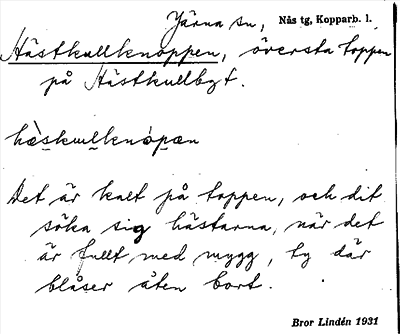 Järna sn, Nås tg, Kopparb. l.
Hästkullknoppen, översta toppen
på Hästkullbgt.
hæ̀skulknópæn
Det är kalt på toppen, och dit
söka sig hästarna, när det
är fullt med mygg, ty där
blåser åten bort.
Bror Lindén 1931